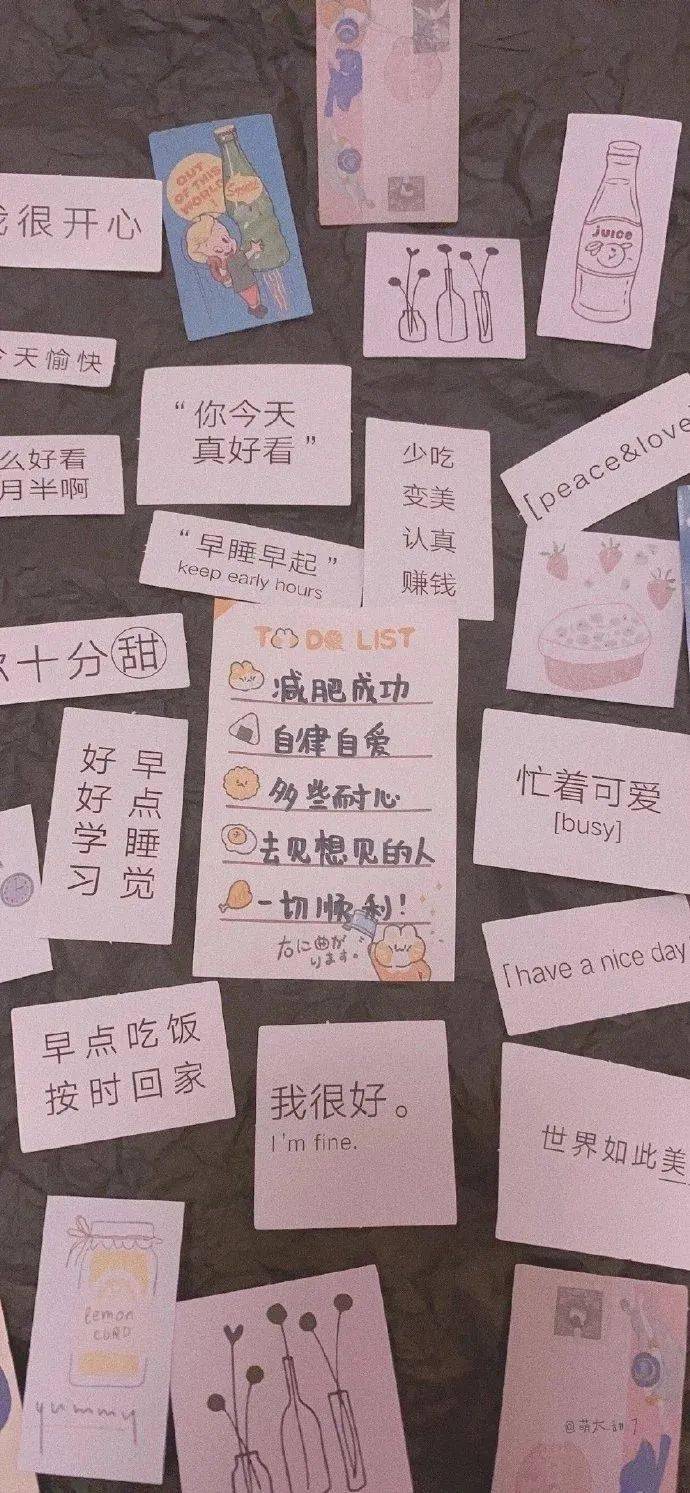 我很开心
OUT
OF THIS
WORLD!
JUICE
今天愉快
“你今天
真好看”
么好看
月半啊
少吃
变美
认真
赚钱
[peace&love
“早睡早起”
keep early hours
十分甜
TO DO LIST
减肥成功
自律自爱
多些耐心
去见想见的人
一切顺利!
右に曲が
ります。
早点睡觉
好好学习
忙着可爱
[busy]
「have a nice day
早点吃饭
按时回家
我很好。
I'm fine.
世界如此美
lemon
CURD
yummy